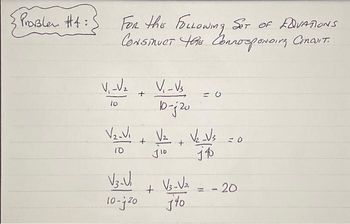 Problem #4:
For the Following Set of Equations
Construct the Corresponding Circuit.
(V₁-V₂)/10 + (V₁-V₃)/(10-j20) = 0
(V₂-V₁)/10 + V₂/j10 + (V₂-V₃)/j40 = 0
(V₃-V₁)/(10-j20) + (V₃-V₂)/j40 = -20